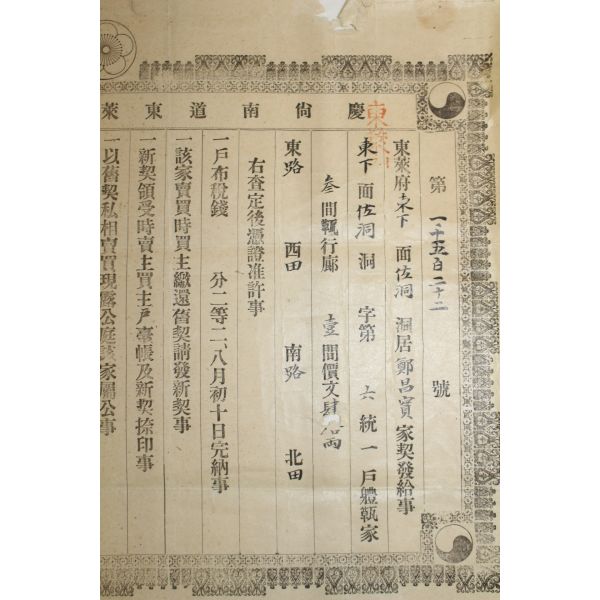 慶尙南道東萊
第一千五百二十二號
東萊府東下面佐洞洞居鄭昌寳家契發給事
東下面佐洞洞字第六統一戶軆瓾家
叄間瓾行廊壹間價文肆兩
東路西田南路北田
右查定後憑證准許事
一戶布稅錢分二等二八月初十日完納事
一該家賣買時買主繳還舊契請發新契事
一新契領受時賣主買主戶臺帳及新契捺印事
一以舊契私相賣買現露公庭該家屬公事